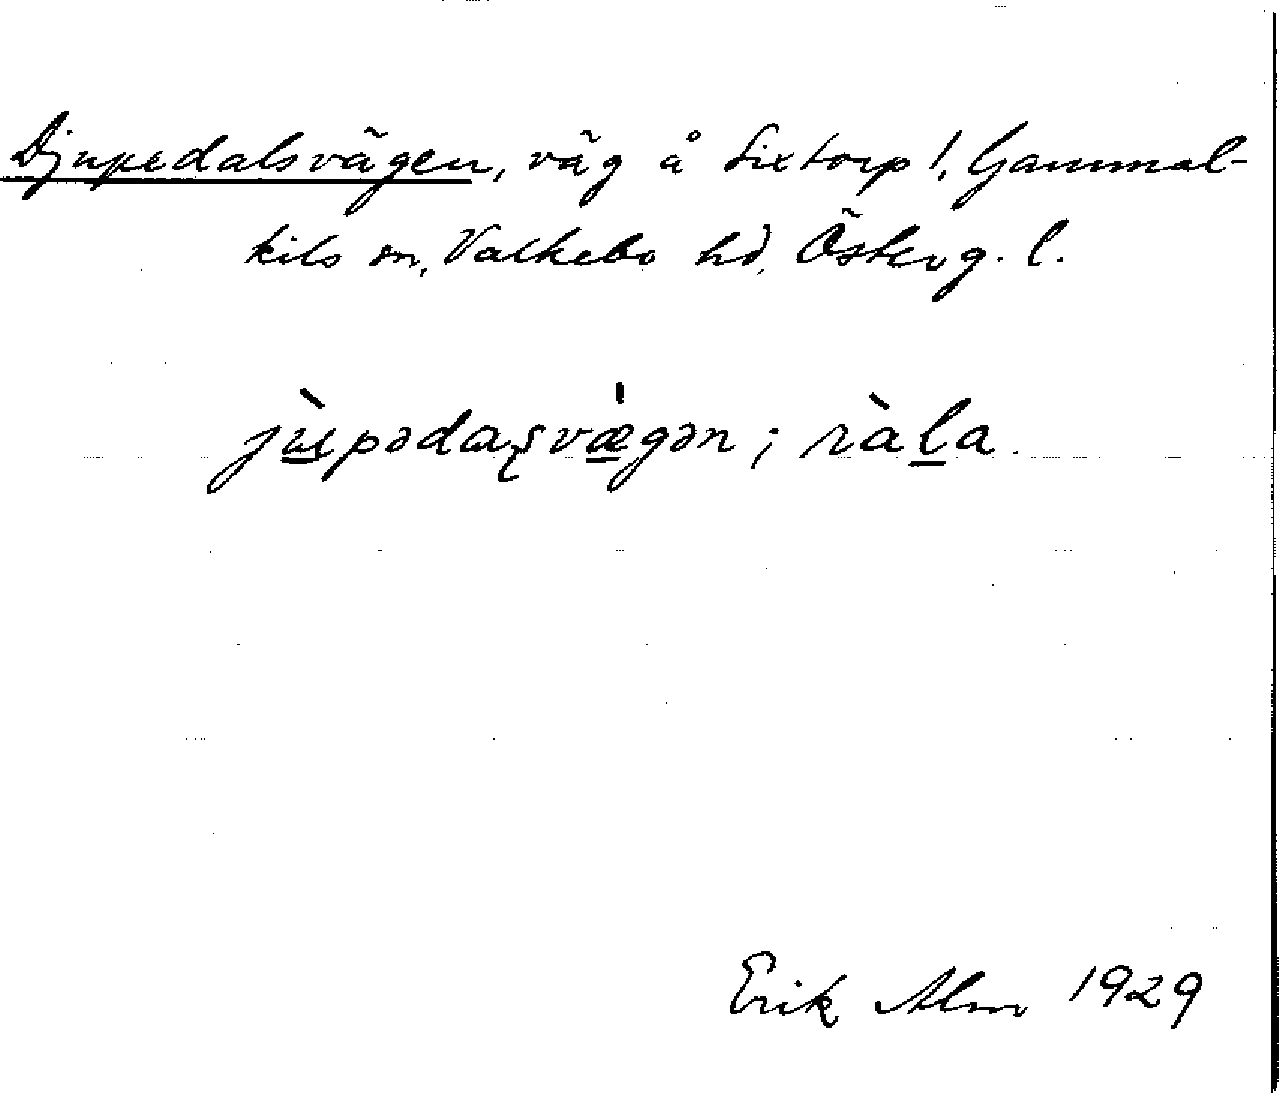 Djupedalsvägen, väg å Sixtorp 1, Gammal-
kils sn, Valkebo hd, Österg. l.
jùpədaʂvǽgən; ràla.
Erik Alm 1929